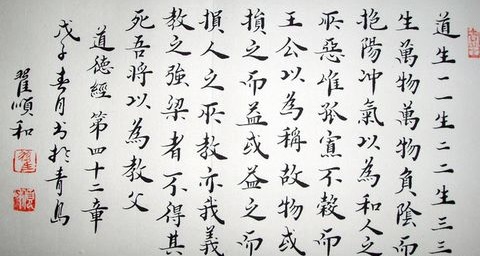 道生一一生二二生三三
生萬物萬物負陰而
抱陽冲氣以為和人之
所惡惟孤寡不穀而
王公以為稱故物或
損之而益或益之而
損人之所教亦我義
教之強梁者不得其
死吾將以為教父
道德經第四十二章
戊子春月书於青島
翟順和